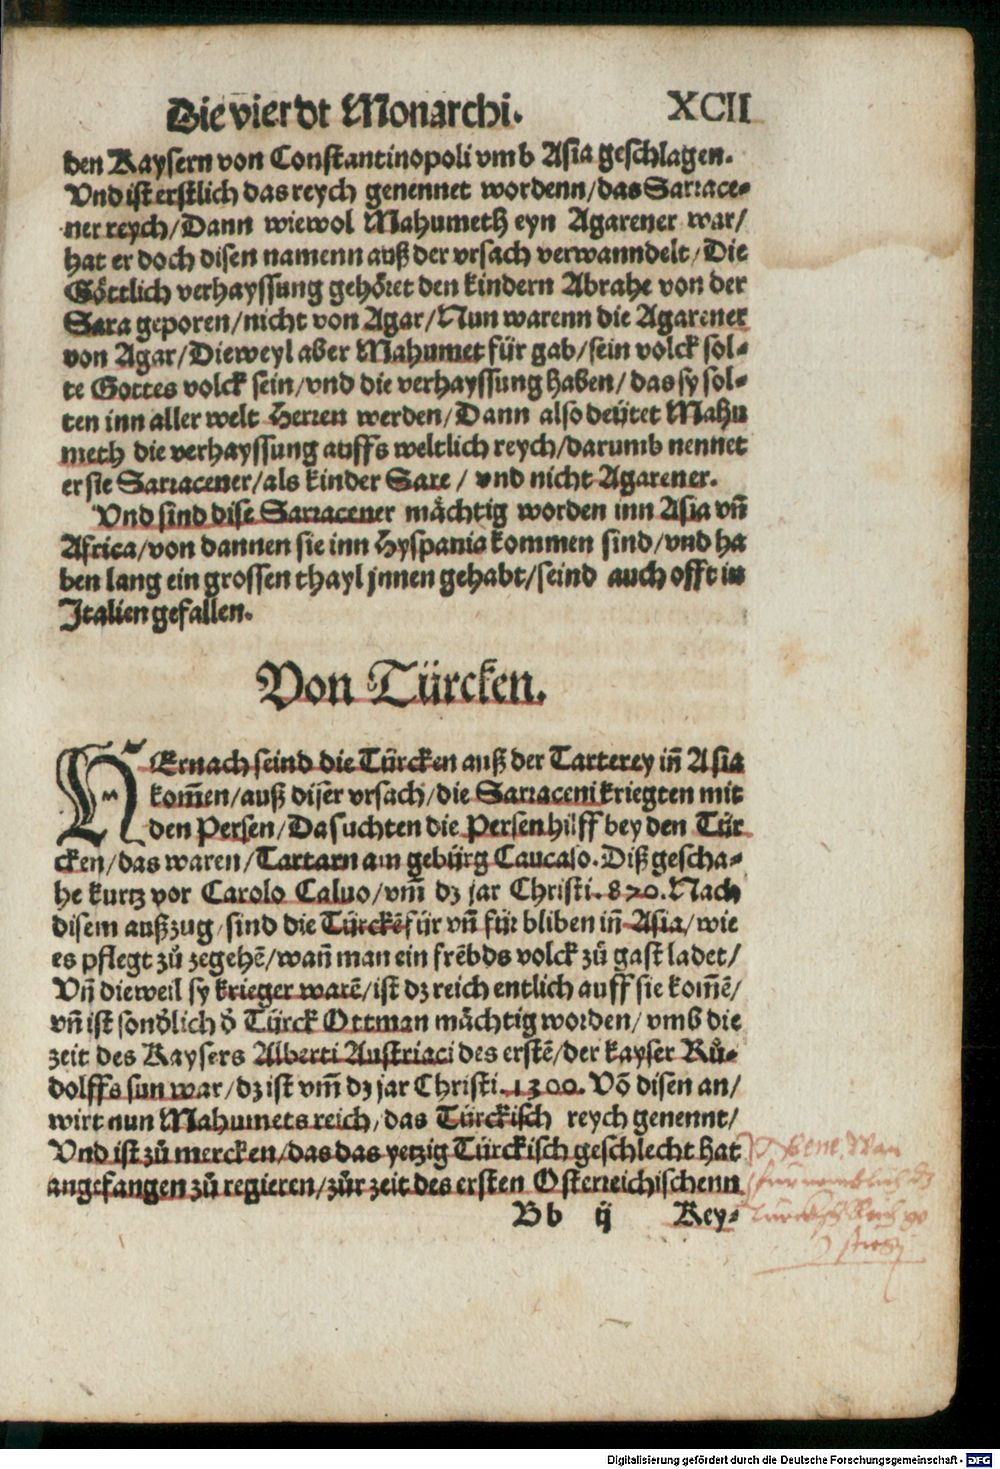 Die vierdt Monarchi. XCII
den Kaysern von Constantinopoli vmb Asia geschlagen.
Vnd ist erstlich das reych genennet wordenn/das Sarrace-
ner reych/Dann wiewol Mahumeth eyn Agarener war/
hat er doch disen namenn auß der vrsach verwanndelt/Die
Göttlich verhayssung gehöret den kindern Abrahe von der
Sara geporen/nicht von Agar/Nun warenn die Agarener
von Agar/Dieweyl aber Mahumet für gab/sein volck sol-
te Gottes volck sein/vnd die verhayssung haben/das sy sol-
ten inn aller welt Herren werden/Dann also deütet Mahu
meth die verhayssung auffs weltlich reych/darumb nennet
er sie Sarracener/als kinder Sare/vnd nicht Agarener.
Vnd sind dise Sarracener mächtig worden inn Asia vñ
Africa/von dannen sie inn Hyspania kommen sind/vnd ha
ben lang ein grossen thayl jnnen gehabt/seind auch offt in
Italien gefallen.
Von Türcken.
HErnach seind die Türcken auß der Tarterey iñ Asia
kom̃en/auß diser vrsach/die Sarraceni kriegten mit
den Persen/Da suchten die Persen hilff bey den Tür
cken/das waren/Tartarn am gebürg Caucaso. Diß gescha-
he kurtz vor Carolo Caluo/vm̃ dz jar Christi. 870. Nach
disem außzug/sind die Türckẽ für vñ für bliben iñ Asia/wie
es pflegt zů zegehẽ/wañ man ein frẽbds volck zů gast ladet/
Vñ dieweil sy krieger warẽ/ist dz reich entlich auff sie kom̃ẽ/
vñ ist sonđlich đ Türck Ottman mächtig worden/vmb die
zeit des Kaysers Alberti Austriaci des erstẽ/der kayser Rů-
dolffs sun war/dz ist vm̃ dz jar Christi. 1300. Võ disen an/
wirt nun Mahumets reich/das Türckisch reych genennt/
Vnd ist zů mercken/das das yetzig Türckisch geschlecht hat
angefangen zů regieren/zůr zeit des ersten Osterreichischenn
Bb ij Key-
Digitalisierung gefördert durch die Deutsche Forschungsgemeinschaft - DFG